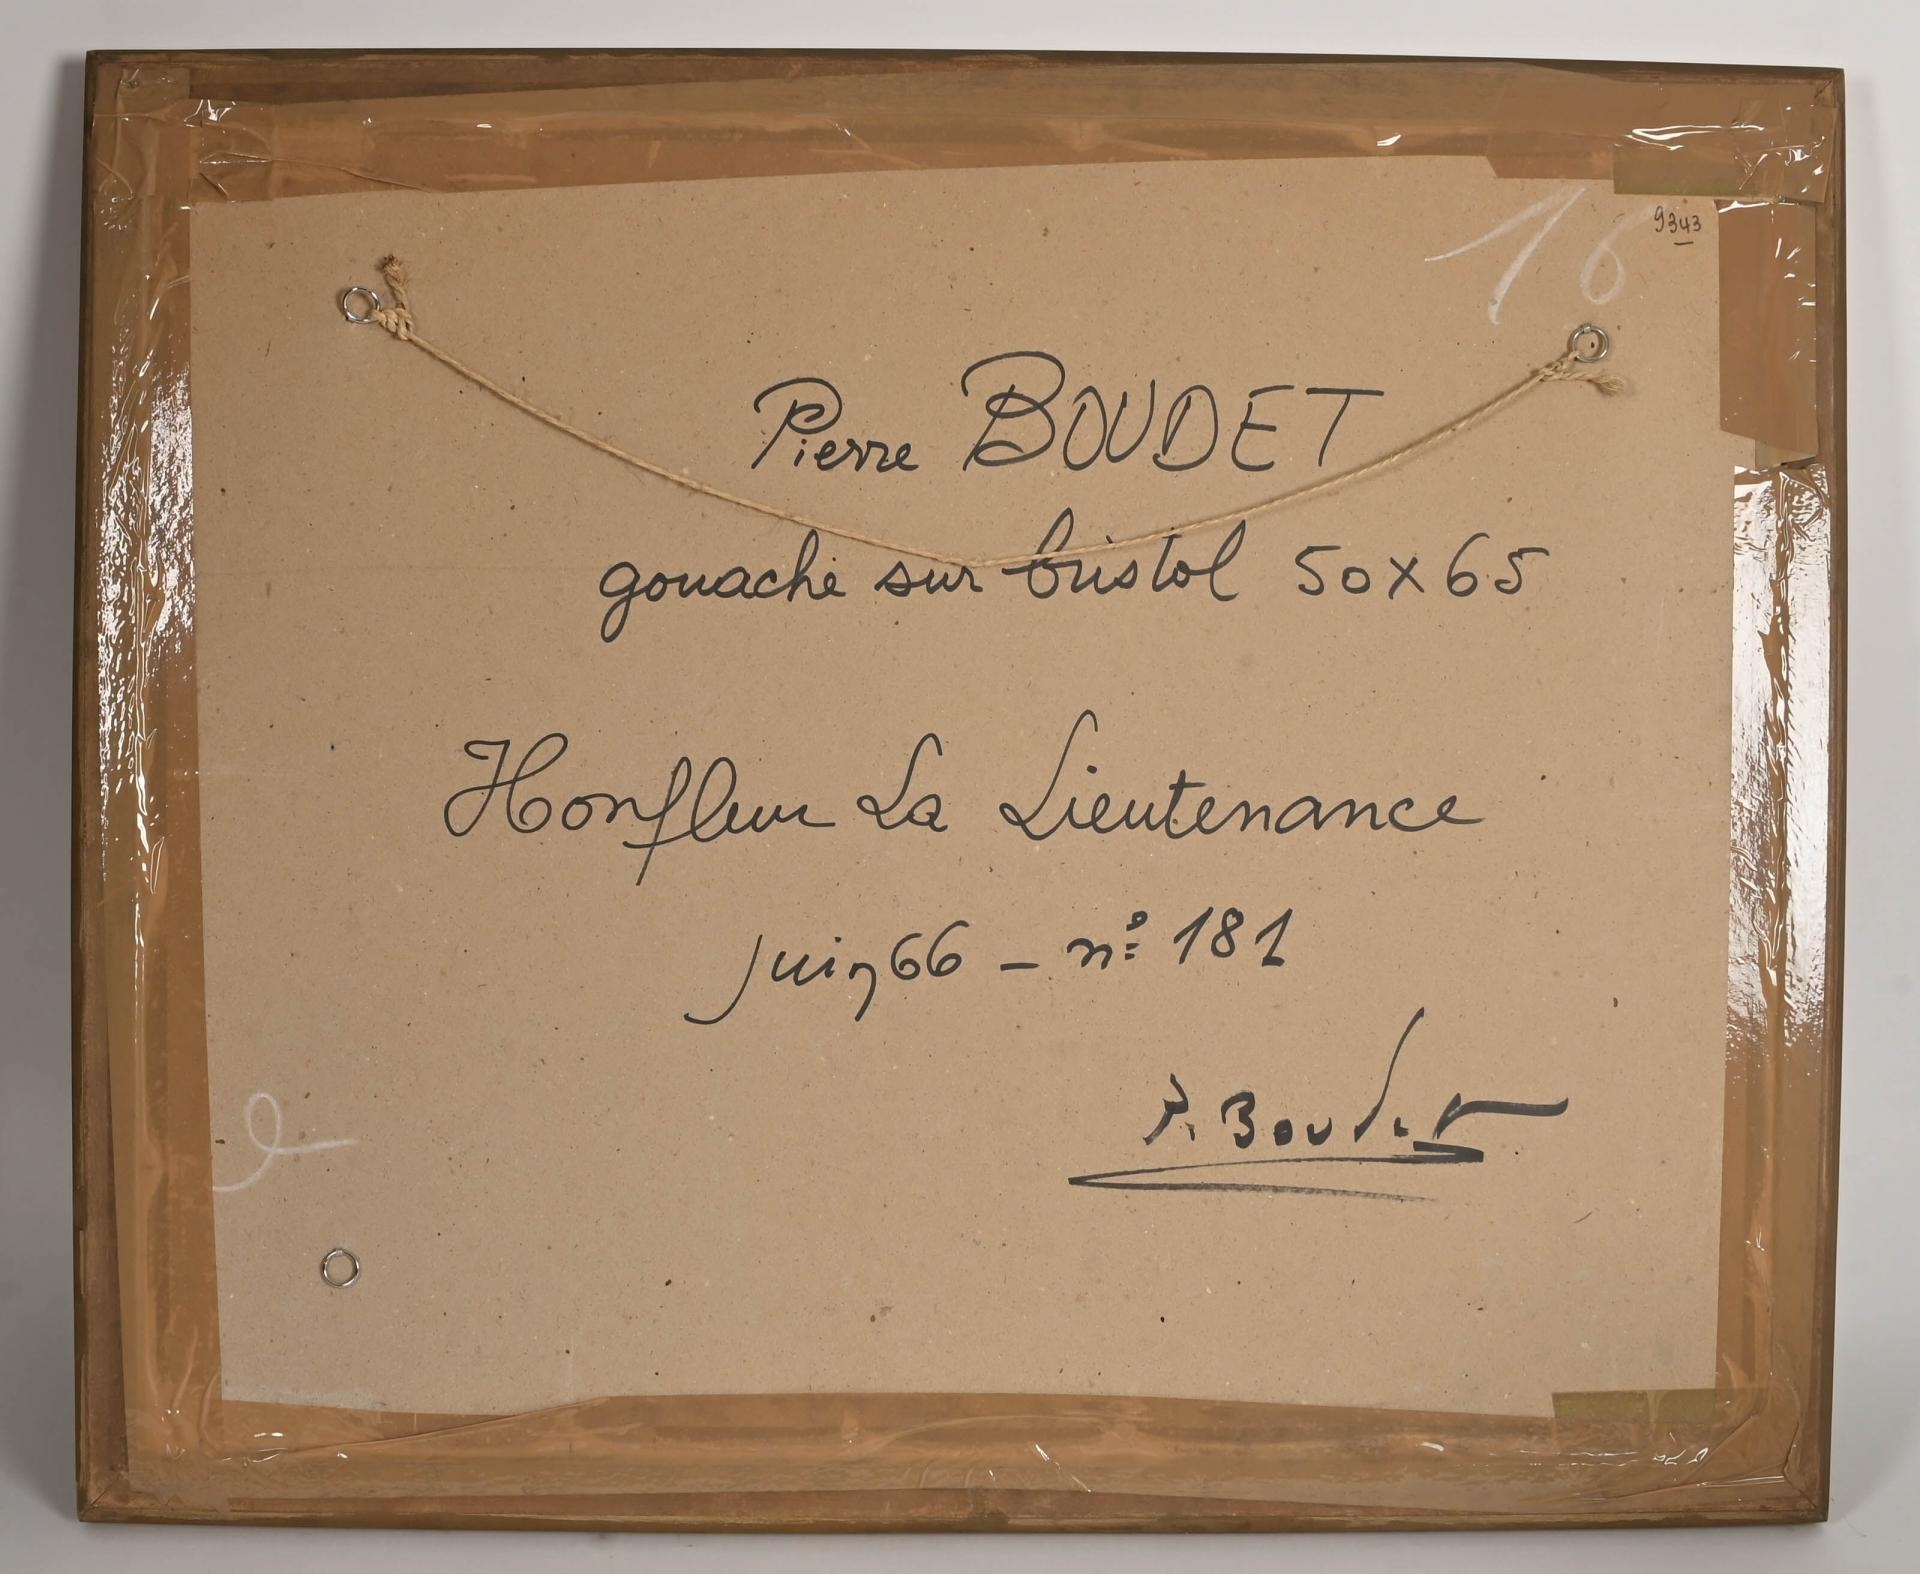 16
9343
Pierre BOUDET
gouache sur bristol 50x65
Honfleur La Lieutenance
juin 66 - n° 181
P. Boudet